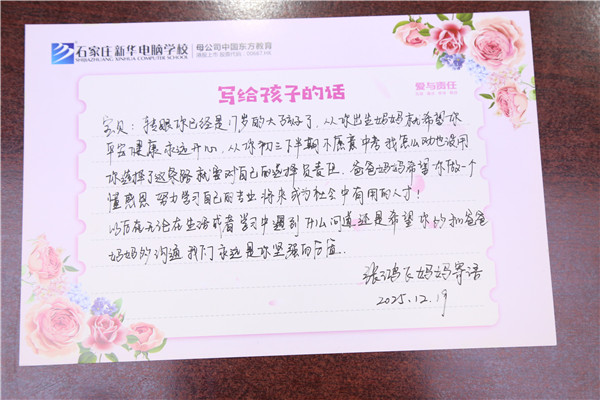 石家庄新华电脑学校
SHIJIAZHUANG XINHUA COMPUTER SCHOOL
母公司中国东方教育
港股上市 股票代码：00667.HK
写给孩子的话
爱与责任
宝贝：转眼你已经是17岁的大孩子了，从你出生妈妈就希望你
平安健康永远开心，从你初三下半期不愿意中考我怎么劝也没用
你选择了这条路就要对自己的选择负责任．爸爸妈妈希望你做一个
懂感恩 努力学习自己的专业将来成为社会中有用的人才！
以后在无论在生活或者学习中遇到什么问题还是希望你多和爸爸
妈妈多沟通 我们永远是你坚强的后盾．
张鸿飞妈妈寄语
2025.12.19